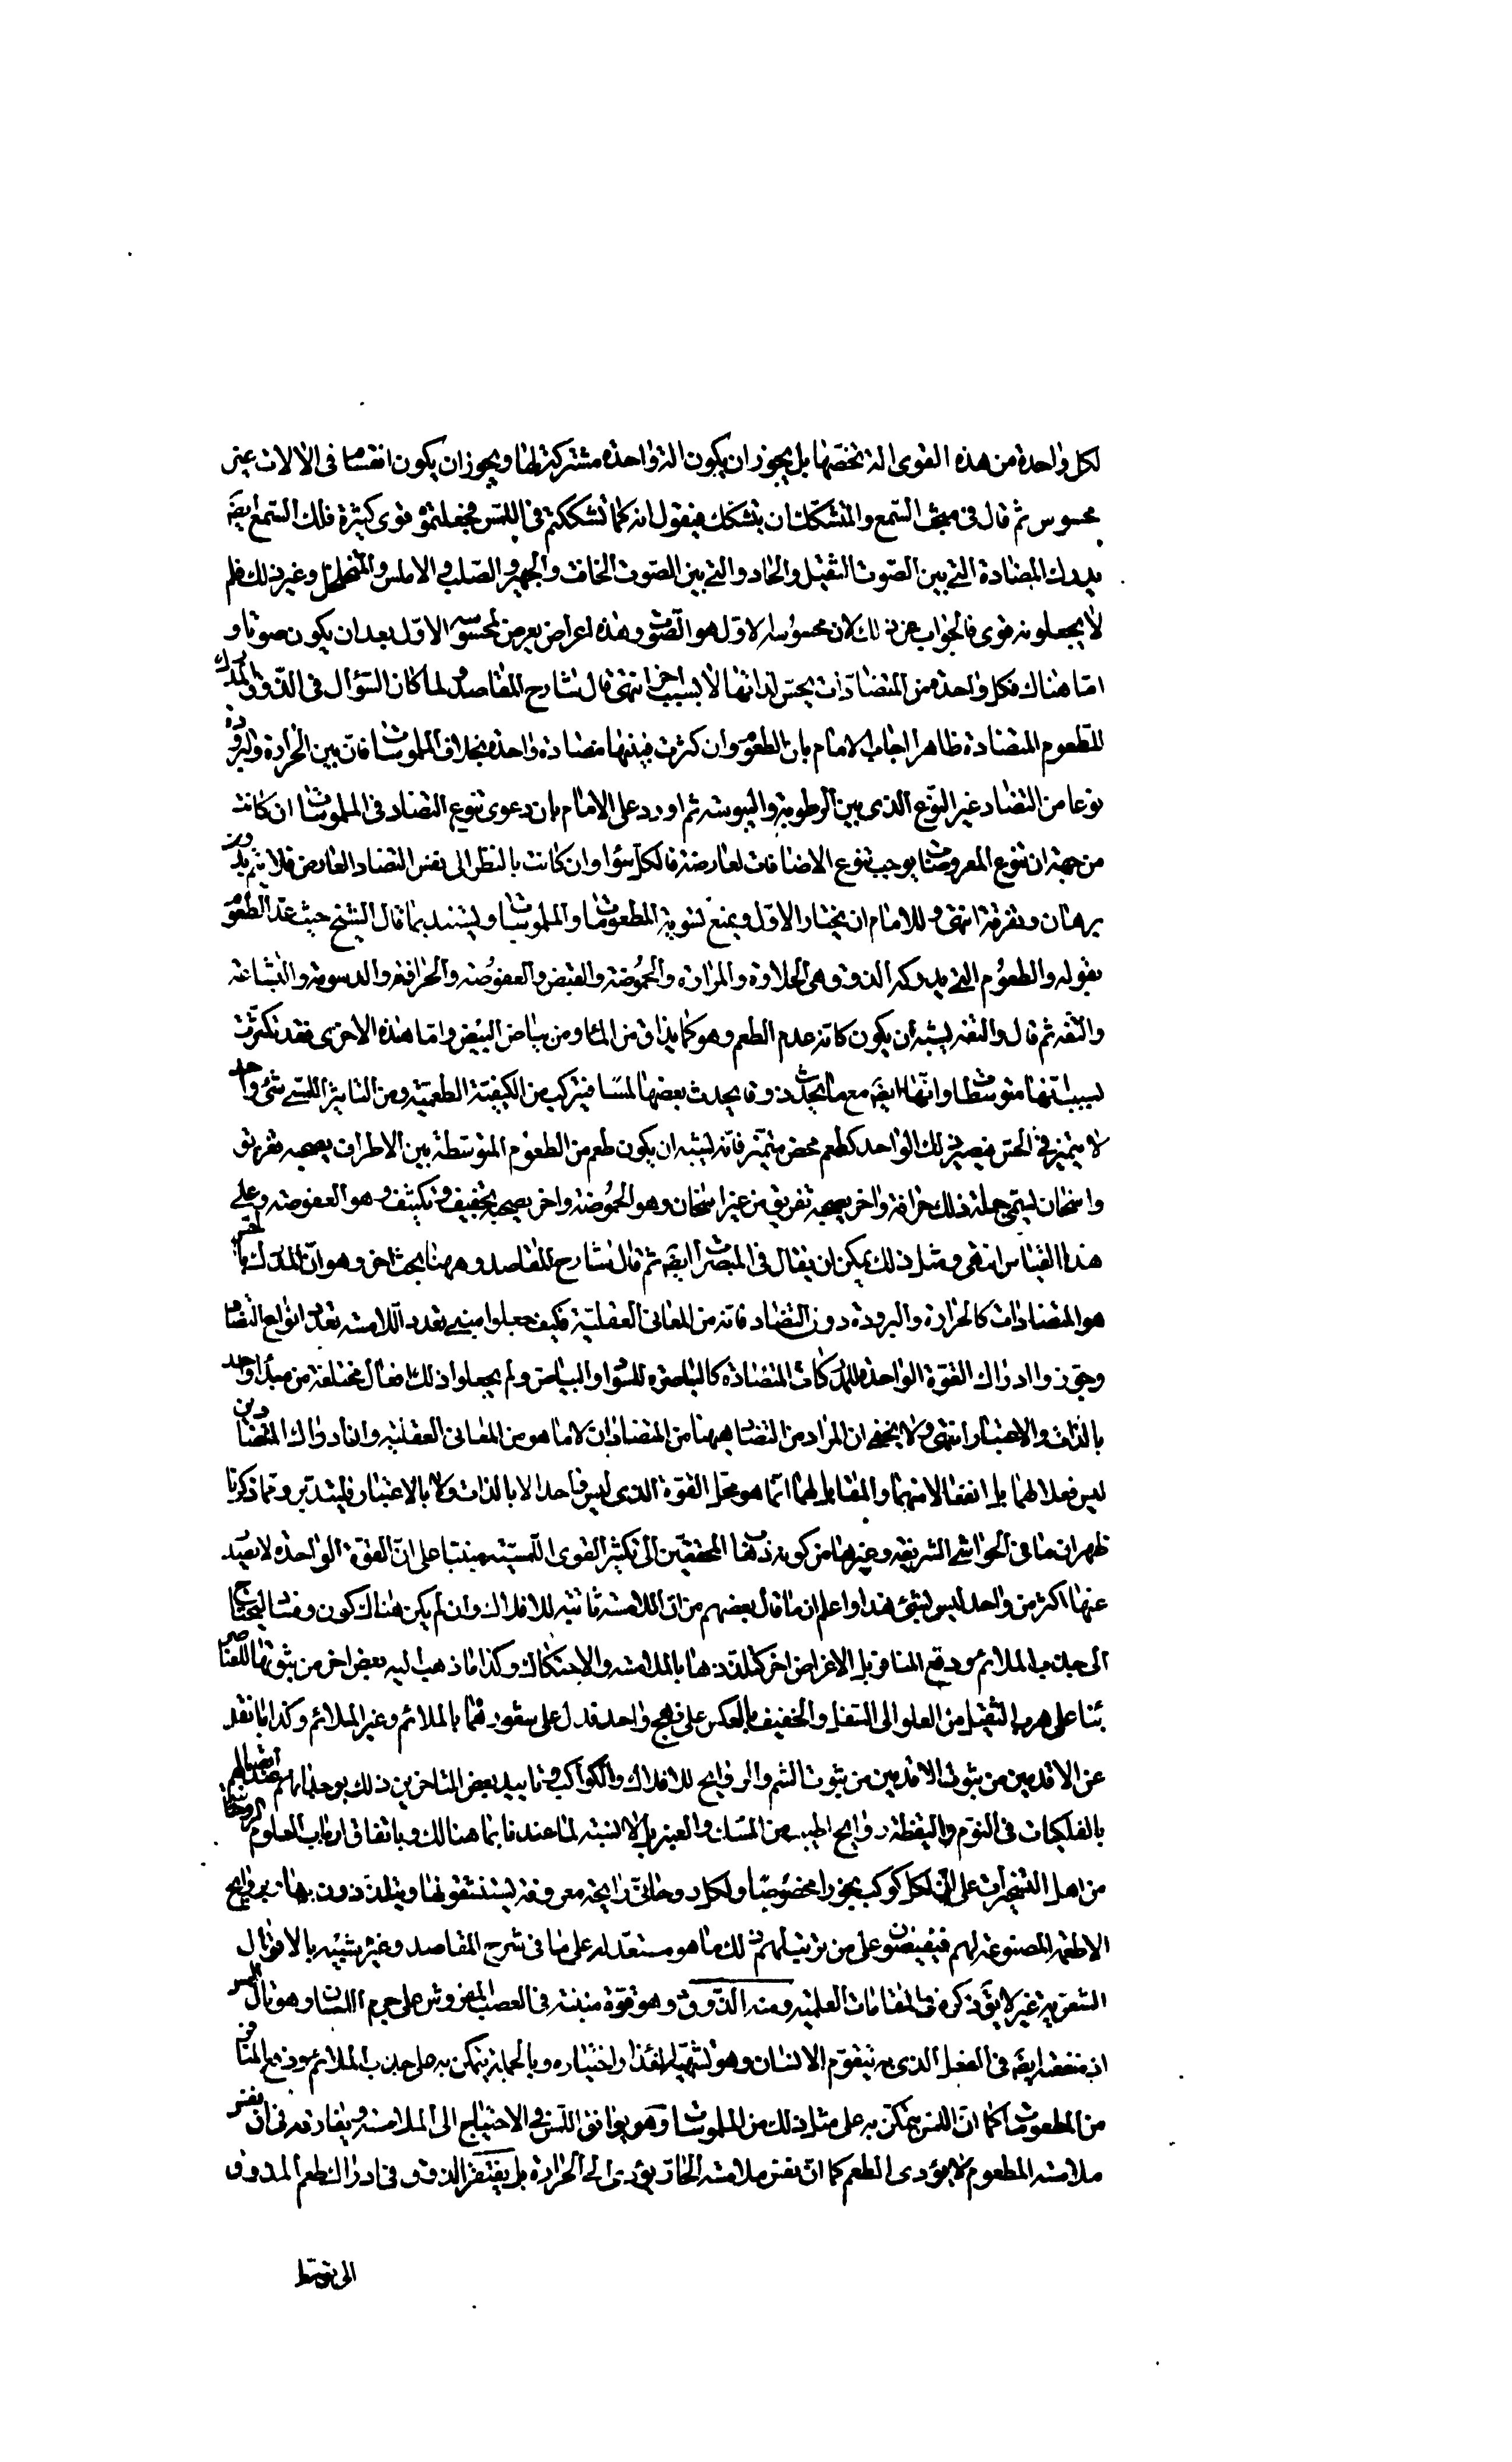 لكل واحدة من هذه القوى الة تخصها بل يجوز ان يكون الة واحدة مشتركة لها ويجوز ان يكون انقسام فى الالات غير
محسوس ثم قال فى مبحث السمع وللمتشكك ان يتشكك فيقول انه كما تشككتم فى اللمس فجعلتموه قوى كثيرة فلك السمع ايضَ
يدرك المضادة التى بين الصوت الثقيل والحاد والتى بين الصوت الخافت والجهير والصلب والاملس والمتخلخل وغير ذلك فلم
لا يجعلونه قوى فالجواب عن ذلك لان محسوسه الاول هو الصوت وهذه اعراض يعرض لمحسوسه الاول بعد ان يكون صوتا و
اما هناك فكل واحدة من المتضادات يحس لذاتها لا بسبب اخر انتهى قال شارح المقاصد ولما كان السؤال فى الذوق المدرك
للطعوم المتضادة ظاهرا اجاب الامام بان الطعوم وان كثرت فبينها مضادة واحدة بخلاف الملموسات فان بين الحرارة والبرودة
نوعا من التضاد غير النوع الذى بين الرطوبة واليبوسة ثم اورد على الامام بان دعوى تنوع التضاد فى الملموسات ان كانت
من جهة ان تنوع المعروضات يوجب تنوع الاضافات العارضة فالكل سواء وان كانت بالنظر الى نفس التضاد العارض فلا يتم بدون
برهان وتفرقة انتهى وللامام ان يختار الاول ويمنع تسوية المطعومات والملموسات ويستند بما قال الشيخ حيث عد الطعوم
بقوله والطعوم التى يدركه الذوق وهى الحلاوة والمرارة والحموضة والقبض والعفوصة والحرافة والدسومة والبشاعة
والتفه ثم قال والتفه يشبه ان يكون كانه عدم الطعم وهو كما يذاق من الماء ومن بياض البيض واما هذه الاخرى فقد تكثرت
بسبب انها متوسطات وانها ايضَ مع ما يحدث ذوقا يحدث بعضها لمسا فيتركب من الكيفية الطعمية ومن التاثير اللمسى شئ واحد
لا يتميز فى الحس فيصير ذلك الواحد كطعم محض متميز فانه يشبه ان يكون طعم من الطعوم المتوسطة بين الاطراف يصحبه تفريق
واسخان يسمى جملة ذلك حرافة واخر يصحبه تفريق من غير اسخان وهو الحموضة واخر يصحبه تجفيف وتكثيف وهو العفوصة وعلى
هذا القياس انتهى ومثل ذلك يمكن ان يقال فى المبصرات ايضَ ثم قال شارح المقاصد وههنا بحث اخر وهو ان المدرك بالحس
هو المتضادات كالحرارة والبرودة دون التضاد فانه من المعانى العقلية فكيف جعلوا مبنى تعدد اللامسة تعدد انواع التضاد
وجوزوا ادراك القوة الواحدة للمدركات المتضادة كالباصرة للسواد والبياض ولم يجعلوا ذلك افعال مختلفة من مبدا واحد
بالذات والاعتبار انتهى ولا يخفى ان المراد من التضاد ههنا من المتضادات لا ما هو من المعانى العقلية وان ادراك المتضادين
ليس فعلا لهما بل انفعالا منهما والمقابل لهما انما هو محل القوة الذى ليس واحدا لا بالذات ولا بالاعتبار فليتدبر ومما ذكرنا
ظهر ان ما فى الحواشى الشريفة وغيرها من كون ذهاب المحققين الى تكثير القوى اللمسية مبنيا على ان القوة الواحدة لا يصدر
عنها اكثر من واحد ليس بشئ هذا واعلم ان ما قال بعضهم من ان اللامسة ثابتة للافلاك وان لم يكن هناك كون وفساد ليحتاج
الى جلب الملائم ودفع المنافر بل لاغراض اخر كتلذذها بالملامسة والاحتكاك وكذا ما ذهب اليه بعض اخر من ثبوتها للعناصر
بناء على هرب الثقيل من العلو الى السفل والخفيف بالعكس على نهج واحد فدل على شعورهما بالملائم وغير الملائم وكذا ما نقل
عن الاقدمين من ثبوت الشم والروايح للافلاك والكواكب وتاييد بعض المتاخرين ذلك بوجدانهم عند اتصالهم
بالفلكيات فى النوم واليقظة روايح اطيب من المسك والعنبر بل لا نسبة لما عندنا بما هنالك وباتفاق ارباب العلوم الروحانية
من اهل التسخيرات على ان لكل كوكب بخورا مخصوصا ولكل روحانى رايحة معروفة يستنشقونها ويتلذذون بها وبروايح
الاطعمة المصنوعة لهم فيفيضون على من يرتب لهم ذلك ما هو مستعد له على ما فى شرح المقاصد وغيره شبيه بالاقوال
الشعرية غير لايق ذكره فى المقامات العلمية ومنه الذوق وهو قوة منبثة فى العصب المفروش على جرم اللسان وهو تال للمس
اذ منفعته ايضَ فى الفعل الذى به يتقوم الانسان وهو تشهية الغذا واختياره وبالجملة يتمكن به على جلب الملائم ودفع المنافر
من المطعومات كما ان اللمس يتمكن به على مثل ذلك من الملموسات وهو يوافق اللمس فى الاحتياج الى الملامسة ويفارقه فى ان نفس
ملامسة المطعوم لا يؤدى الطعم كما ان نفس ملامسة الحار يؤدى الى الحرارة بل يفتقر الذوق فى ادراك طعم المذوق
الى توسط